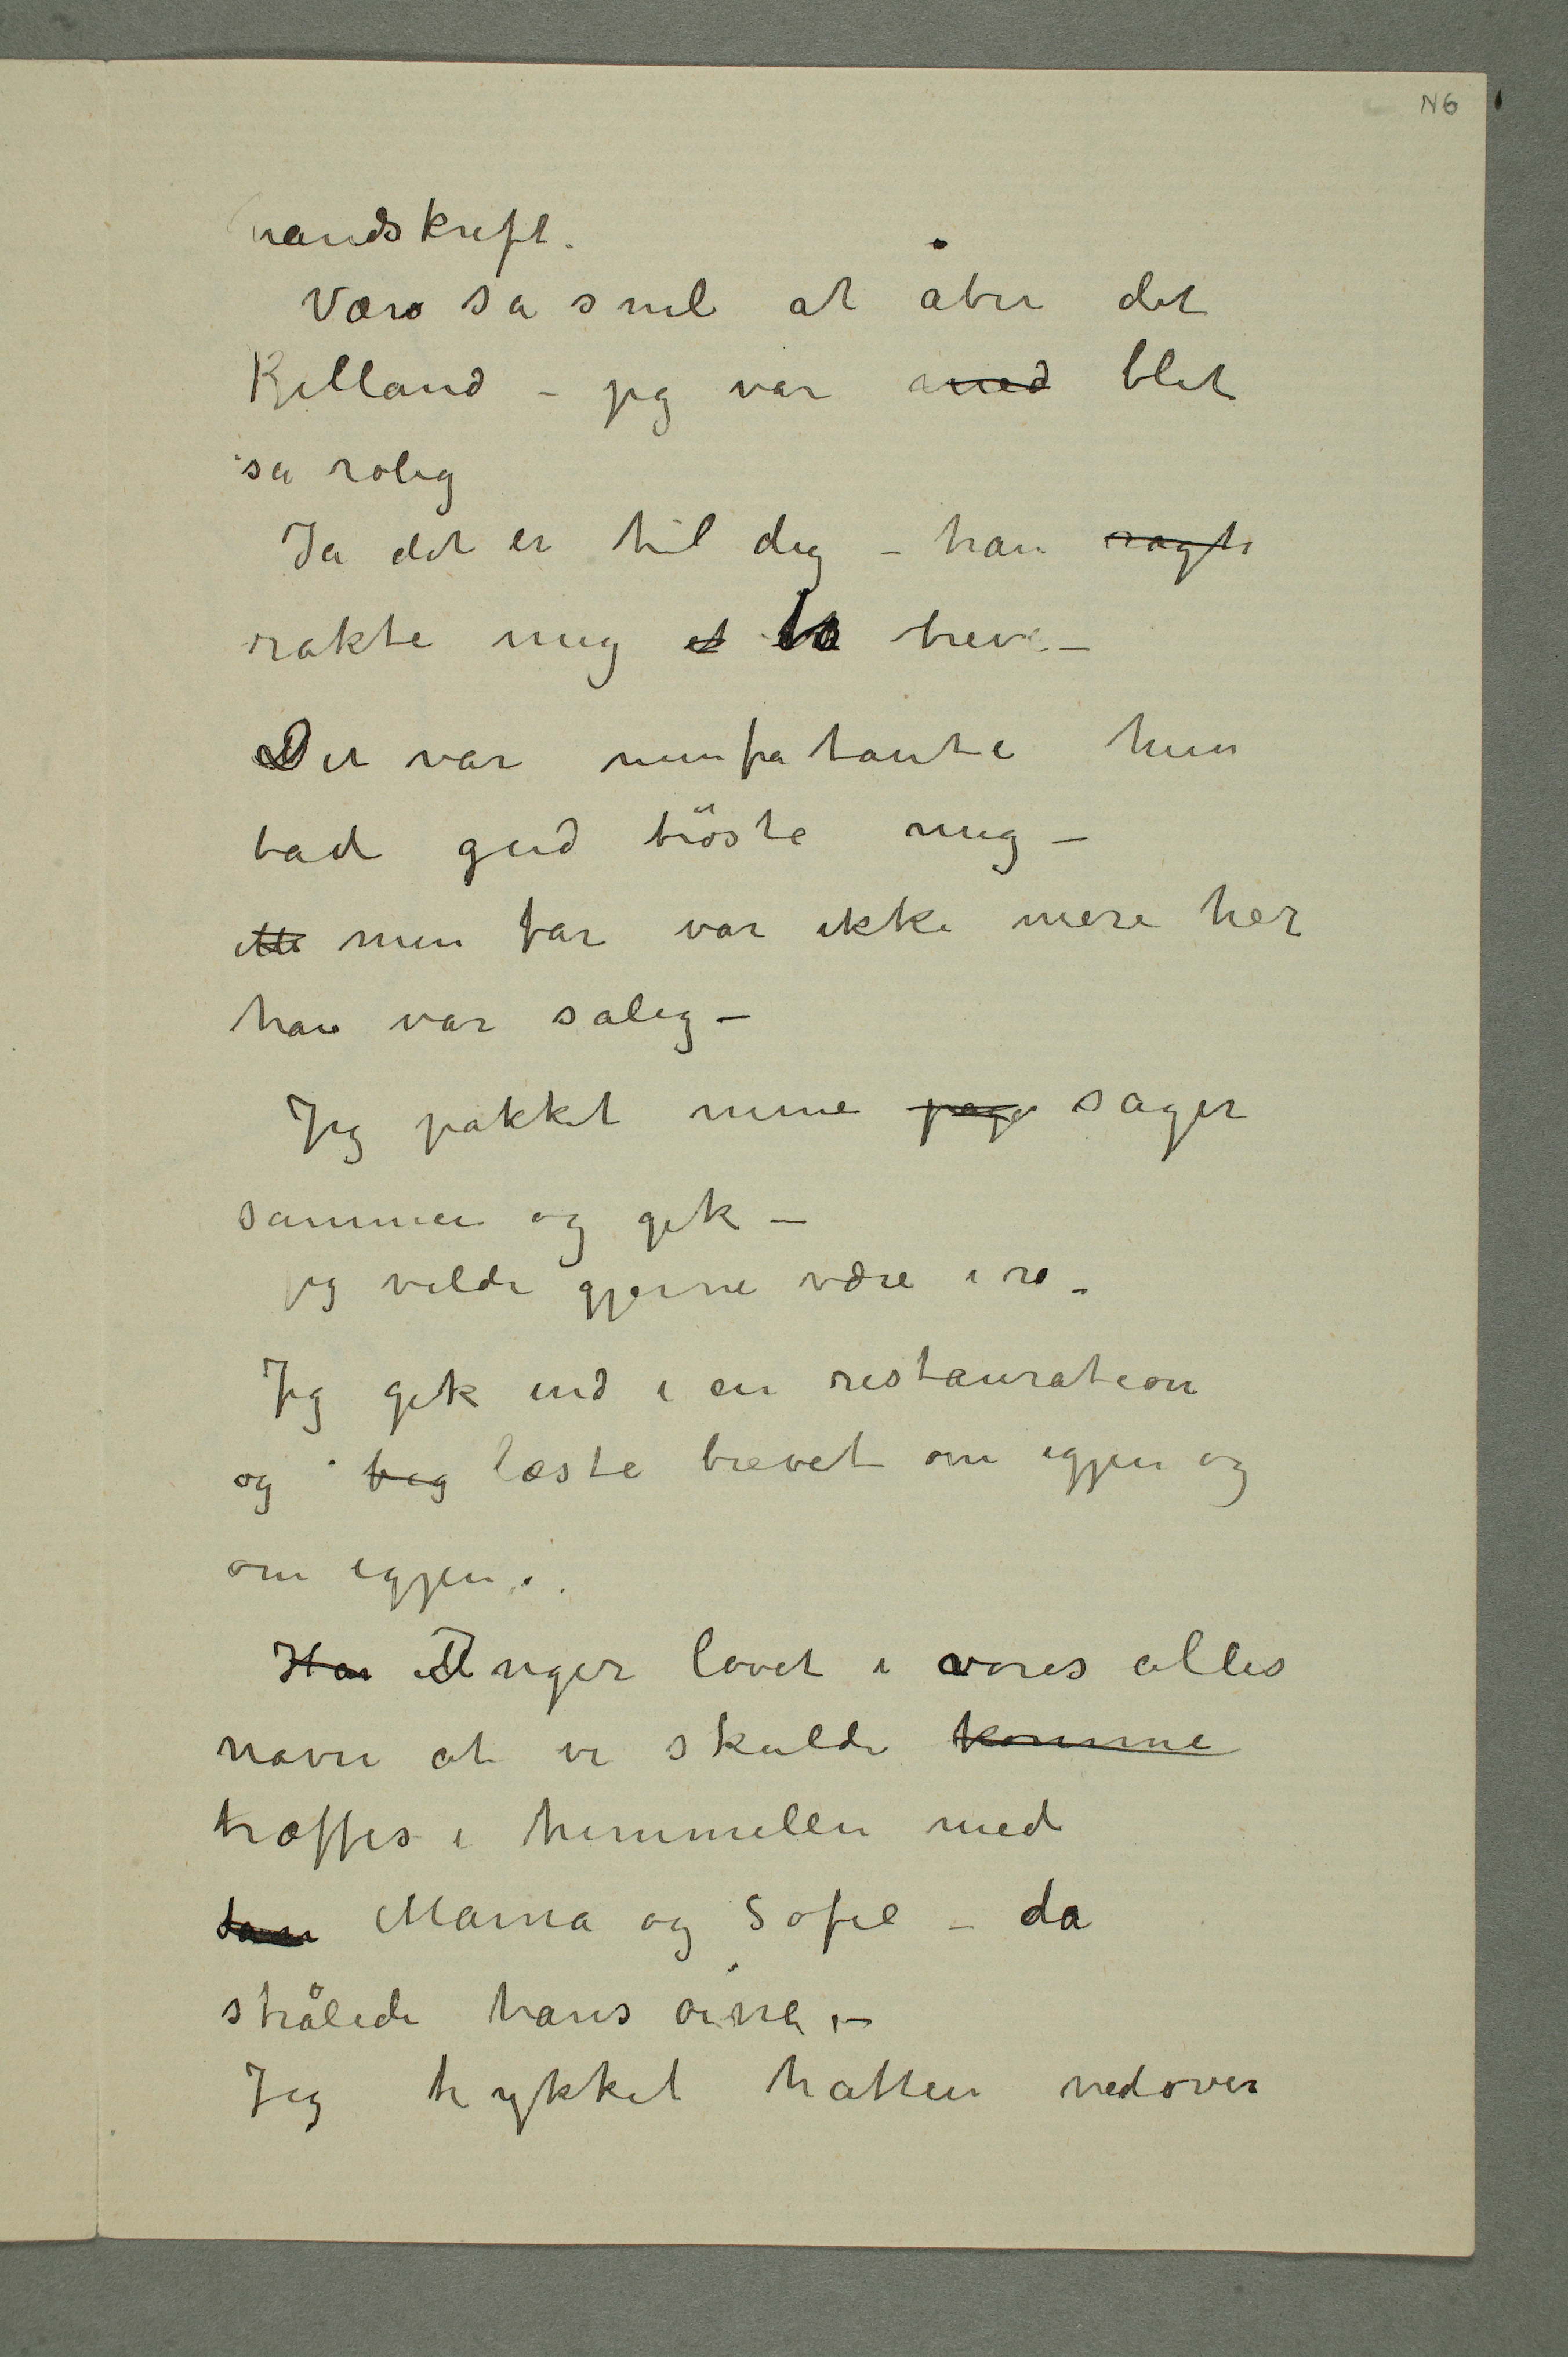 N6
handskrift.
Være så snil at åbn det
Kjelland – jeg var med blet
så rolig
Ja det er til dig – han ragte
rakte mig et to breve –
Det var min fra tante hun
bad gud trøste mig –
min far var ikke mere her
han var salig –
Jeg pakket mine page sager
sammen og gik –
jeg vilde gjerne være i ro.
Jeg gik ind i en restauration
og beg læste brevet om igjen og
om igjen.
Har Unger lovet i vores alles
navn at vi skulde komme
træffes i himmellen med
Mama og Sofie – da
strålede hans öine, –
Jeg trykket hatten nedover